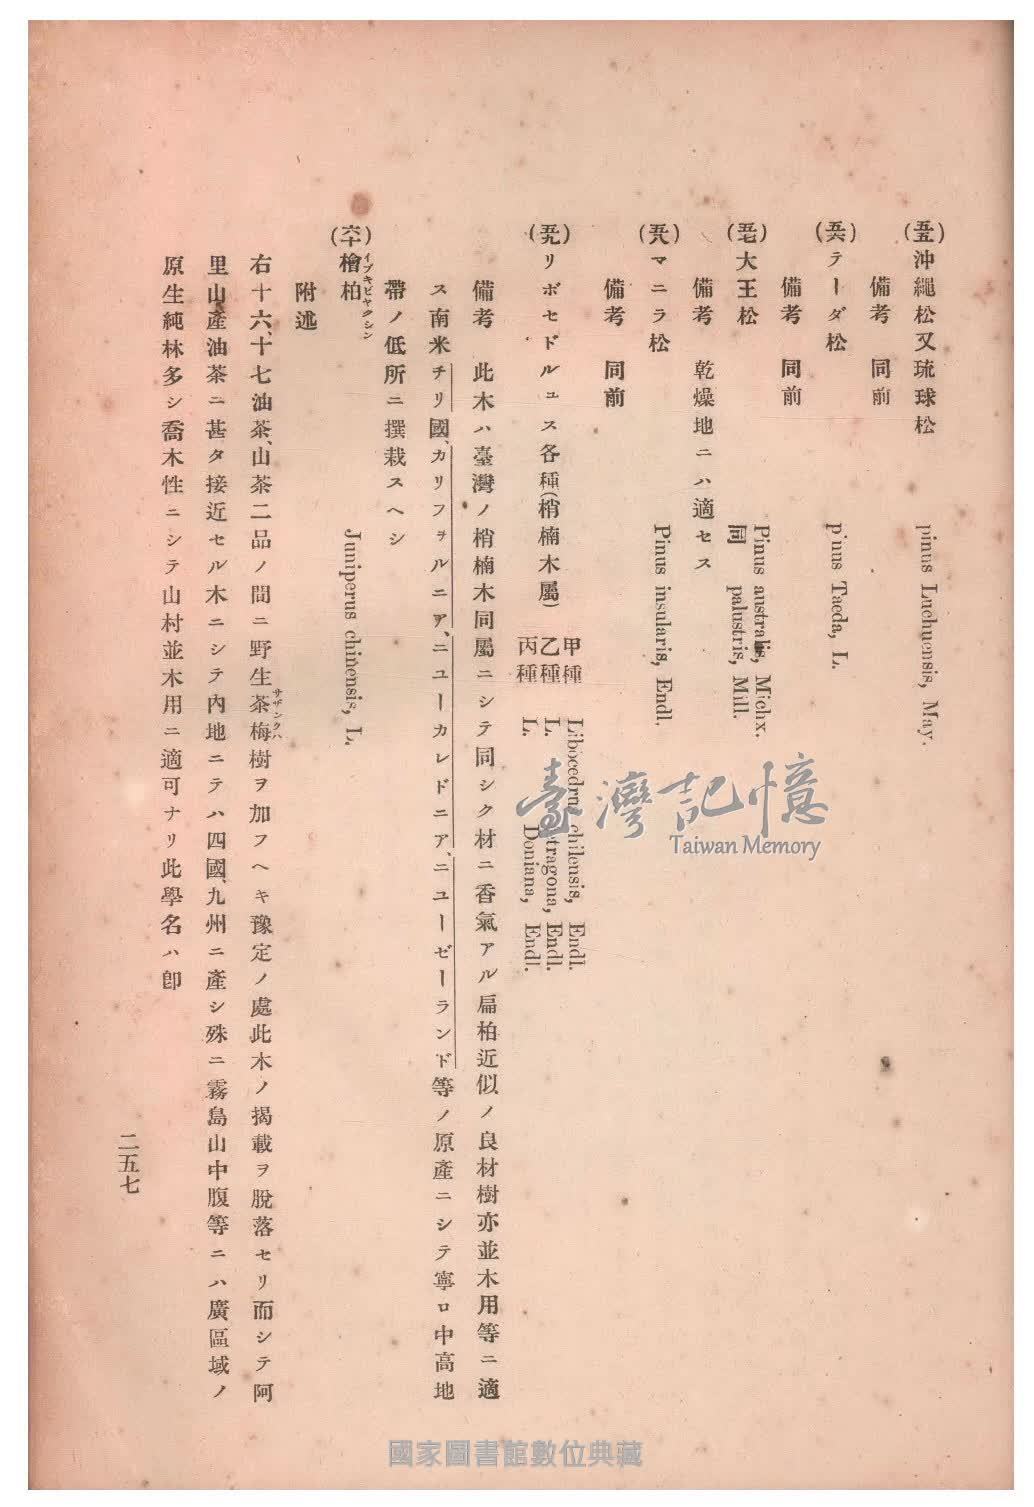 (五五)沖繩松又琉球松 pinus Luchuensis, May.
備考 同前
(五六)テーダ松 pinus Taeda, L.
備考 同前
(五七)大王松 Pinus australis, Michx.
同 palustris, Mill.
備考 乾燥地ニハ適セス
(五八)マニラ松 Pinus insularis, Endl.
備考 同前
(五九)リボセドルュス各種(梢楠木屬)
甲種 Libocedru chilensis, Endl.
乙種 L. etragona, Endl.
丙種 L. Doniana, Endl.
備考 此木ハ臺灣ノ梢楠木同屬ニシテ同シク材ニ香氣アル扁柏近似ノ良材樹亦並木用等ニ適
ス南米チリ國、カリフヲルニア、ニユーカレドニア、ニユーゼーランド等ノ原產ニシテ寧ロ中高地
帶ノ低所ニ撰栽スヘシ
(六十)檜柏 イブキビヤクシン Juniperus chinensis, L.
附述
右十六、十七油茶、山茶二品ノ間ニ野生茶梅樹ヲ加フヘキ豫定ノ處此木ノ揭載ヲ脫落セリ而シテ阿
サザンクハ
里山產油茶ニ甚タ接近セル木ニシテ內地ニテハ四國、九州ニ產シ殊ニ霧島山中腹等ニハ廣區域ノ
原生純林多シ喬木性ニシテ山村並木用ニ適可ナリ此學名ハ卽
二五七
臺灣記憶
Taiwan Memory
國家圖書館數位典藏